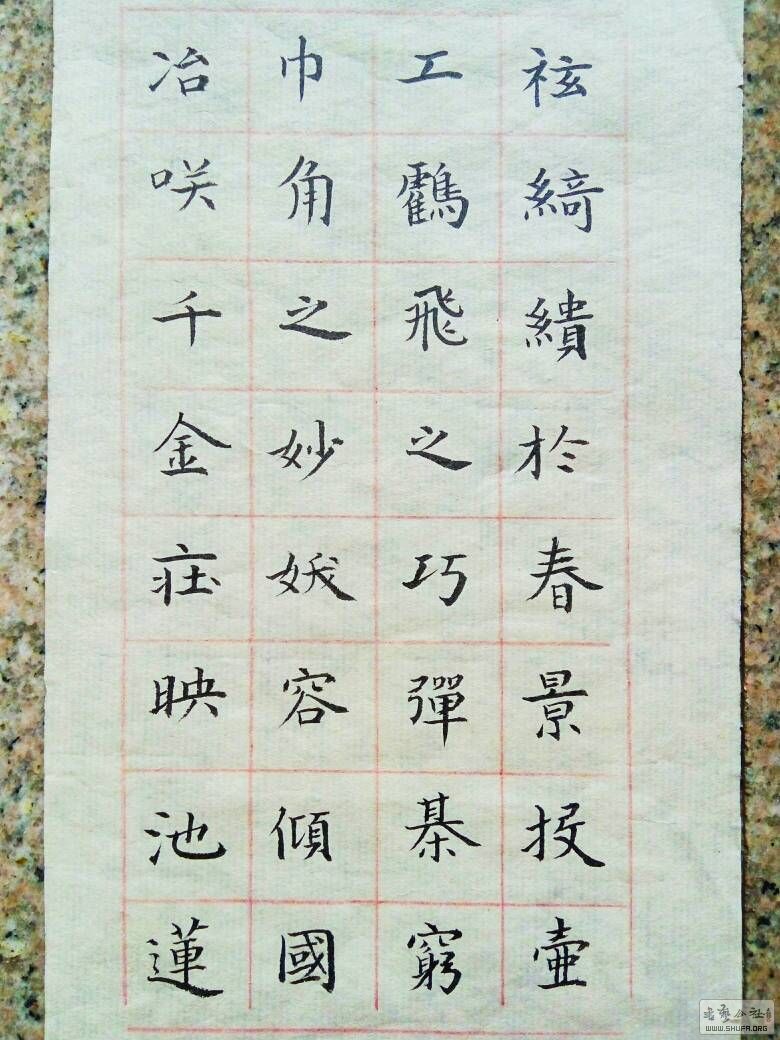 袨綺繢於春景投壷
工鸖飛之巧彈棊窮
巾角之妙妖容傾國
冶咲千金莊映池蓮
书艺公社
WWW.SHUFA.ORG